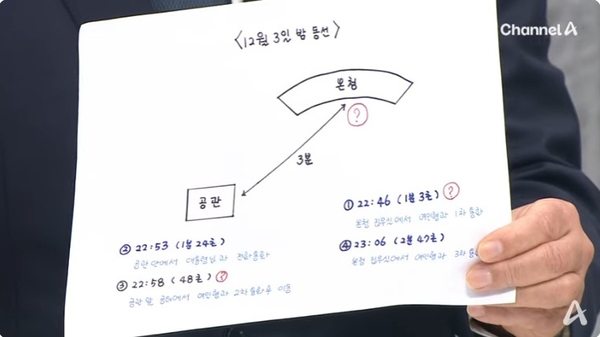 Channel A
<12월 3일 밤 동선>
본청
?
3분
공관
① 22:46 (1분 3초) ?
본청 집무실에서 여인형과 1차 통화
② 22:53 (1분 24초)
공관 안에서 대통령님과 전화통화
③ 22:58 (48초) ?
공관 앞 공터에서 여인형과 2차 통화 후 이동
④ 23:06 (2분 47초)
본청 집무실에서 여인형과 3차 통화